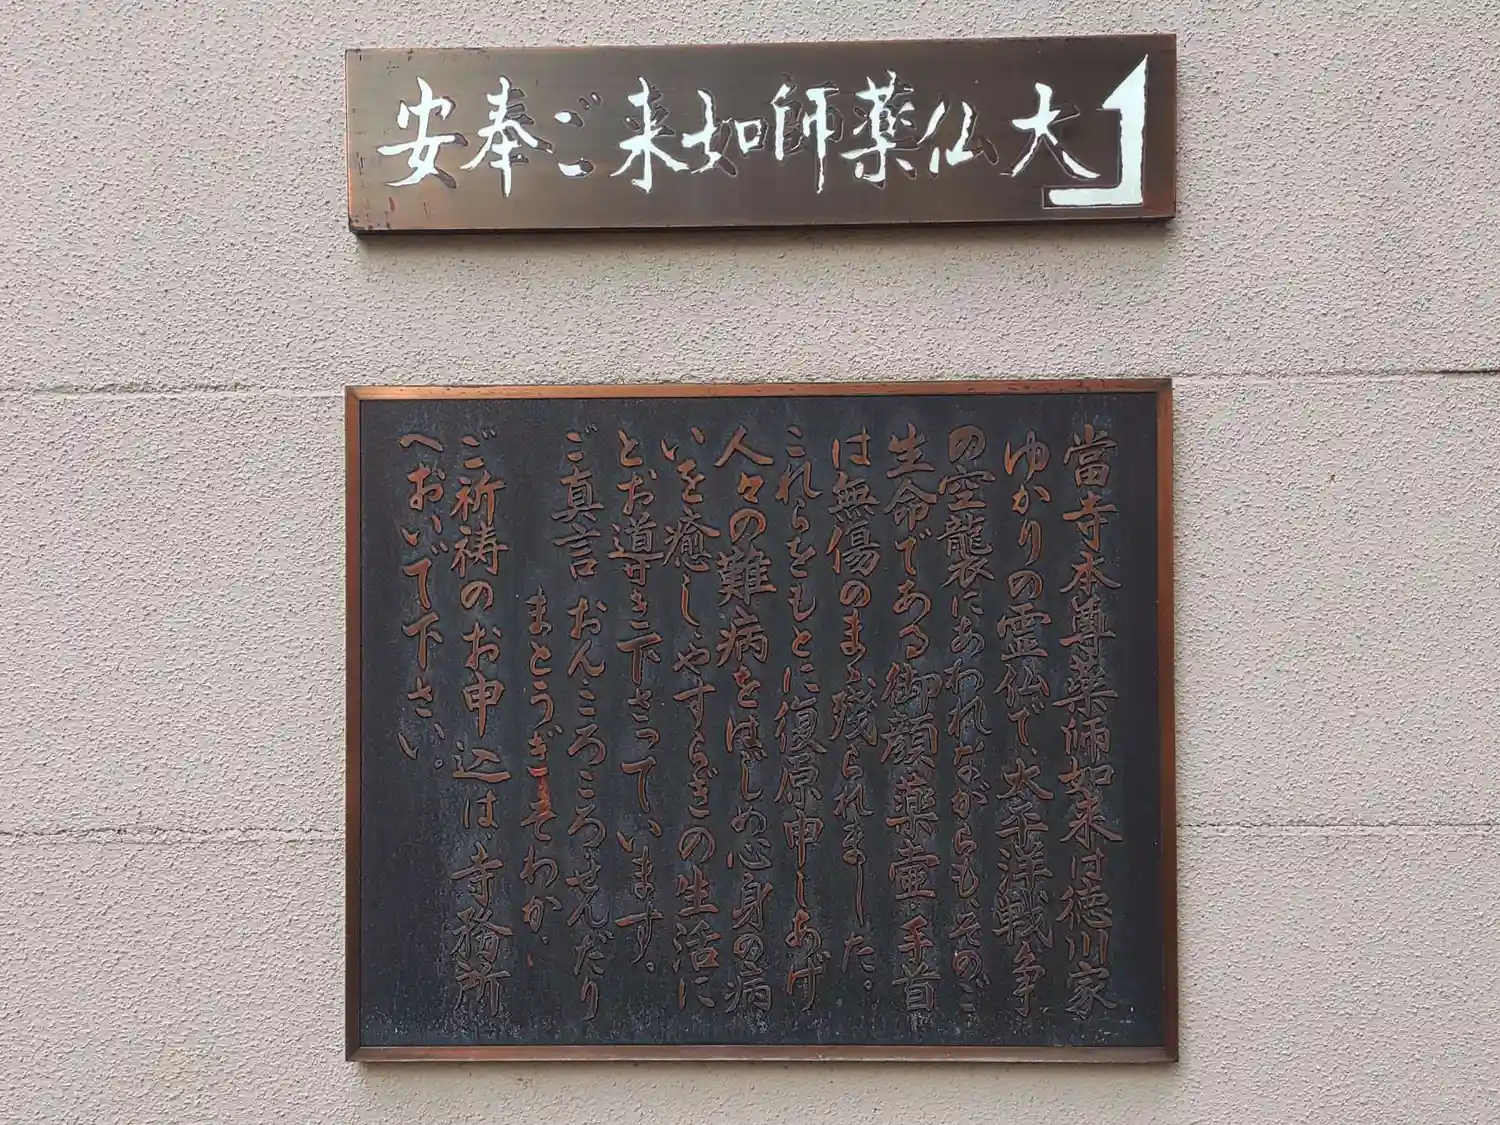 大仏薬師如来ご奉安
當寺本尊薬師如来は徳川家
ゆかりの霊仏で、太平洋戦争
の空襲にあわれながらも、そのご
生命である御顔・薬壷・手首
は無傷のまゝ残られました。
これらをもとに復原申しあげ
人々の難病をはじめ心身の病
いを癒し、やすらぎの生活に
とお導き下さっています。
ご真言 おんころころせんだり
まとうぎそわか、
ご祈祷のお申込は寺務所
へおいで下さい。